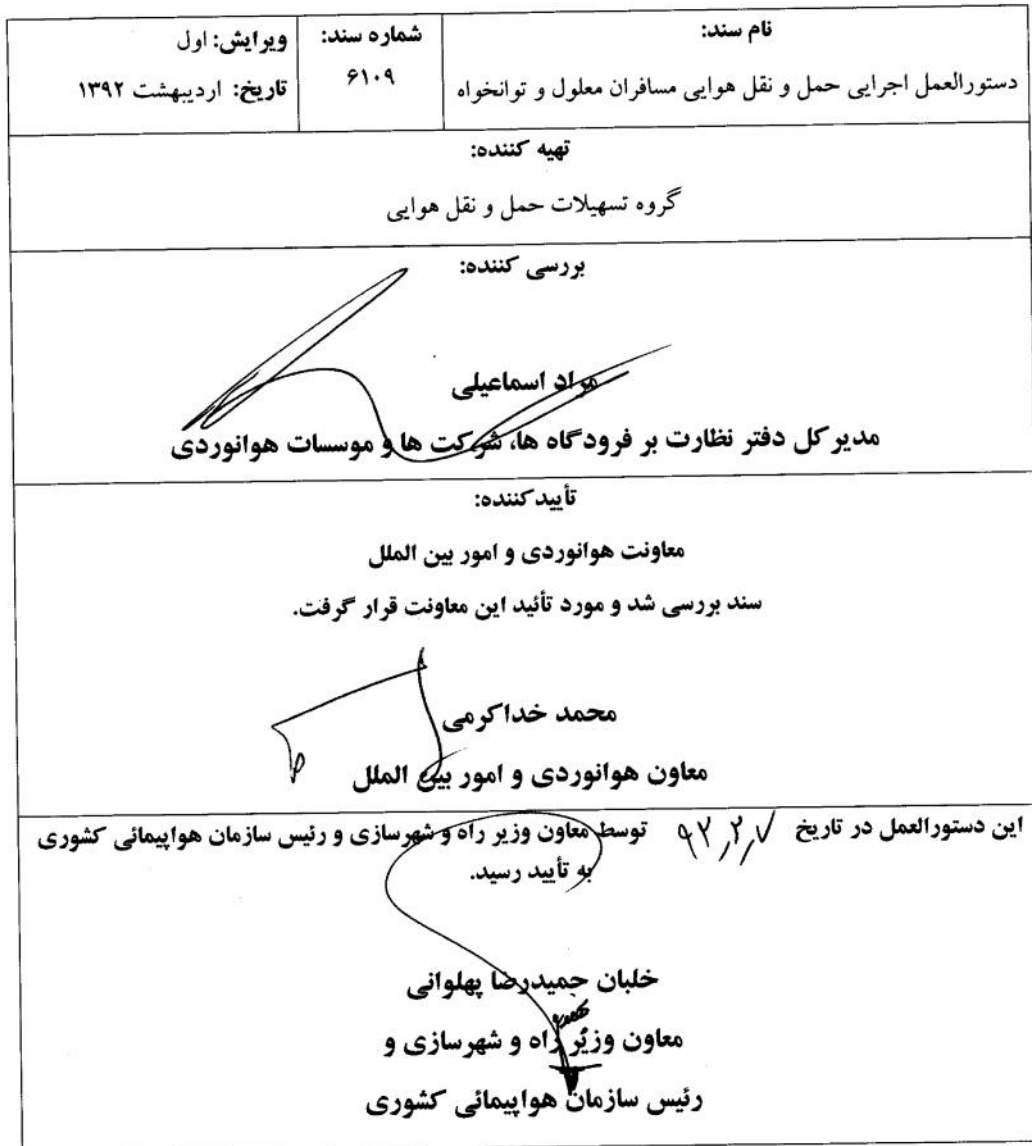 نام سند:
دستورالعمل اجرایی حمل و نقل هوایی مسافران معلول و توانخواه
شماره سند:
۶۱۰۹
ویرایش: اول
تاریخ: اردیبهشت ۱۳۹۲
تهیه کننده:
گروه تسهیلات حمل و نقل هوایی
بررسی کننده:
مراد اسماعیلی
مدیر کل دفتر نظارت بر فرودگاه ها، شرکت ها و موسسات هوانوردی
تأیید کننده:
معاونت هوانوردی و امور بین الملل
سند بررسی شد و مورد تأئید این معاونت قرار گرفت.
محمد خداکرمی
معاون هوانوردی و امور بین الملل
این دستورالعمل در تاریخ ۹۲٫۲٫۷ توسط معاون وزیر راه و شهرسازی و رئیس سازمان هواپیمائی کشوری
به تأیید رسید.
خلبان حمیدرضا پهلوانی
معاون وزیر راه و شهرسازی و
رئیس سازمان هواپیمائی کشوری